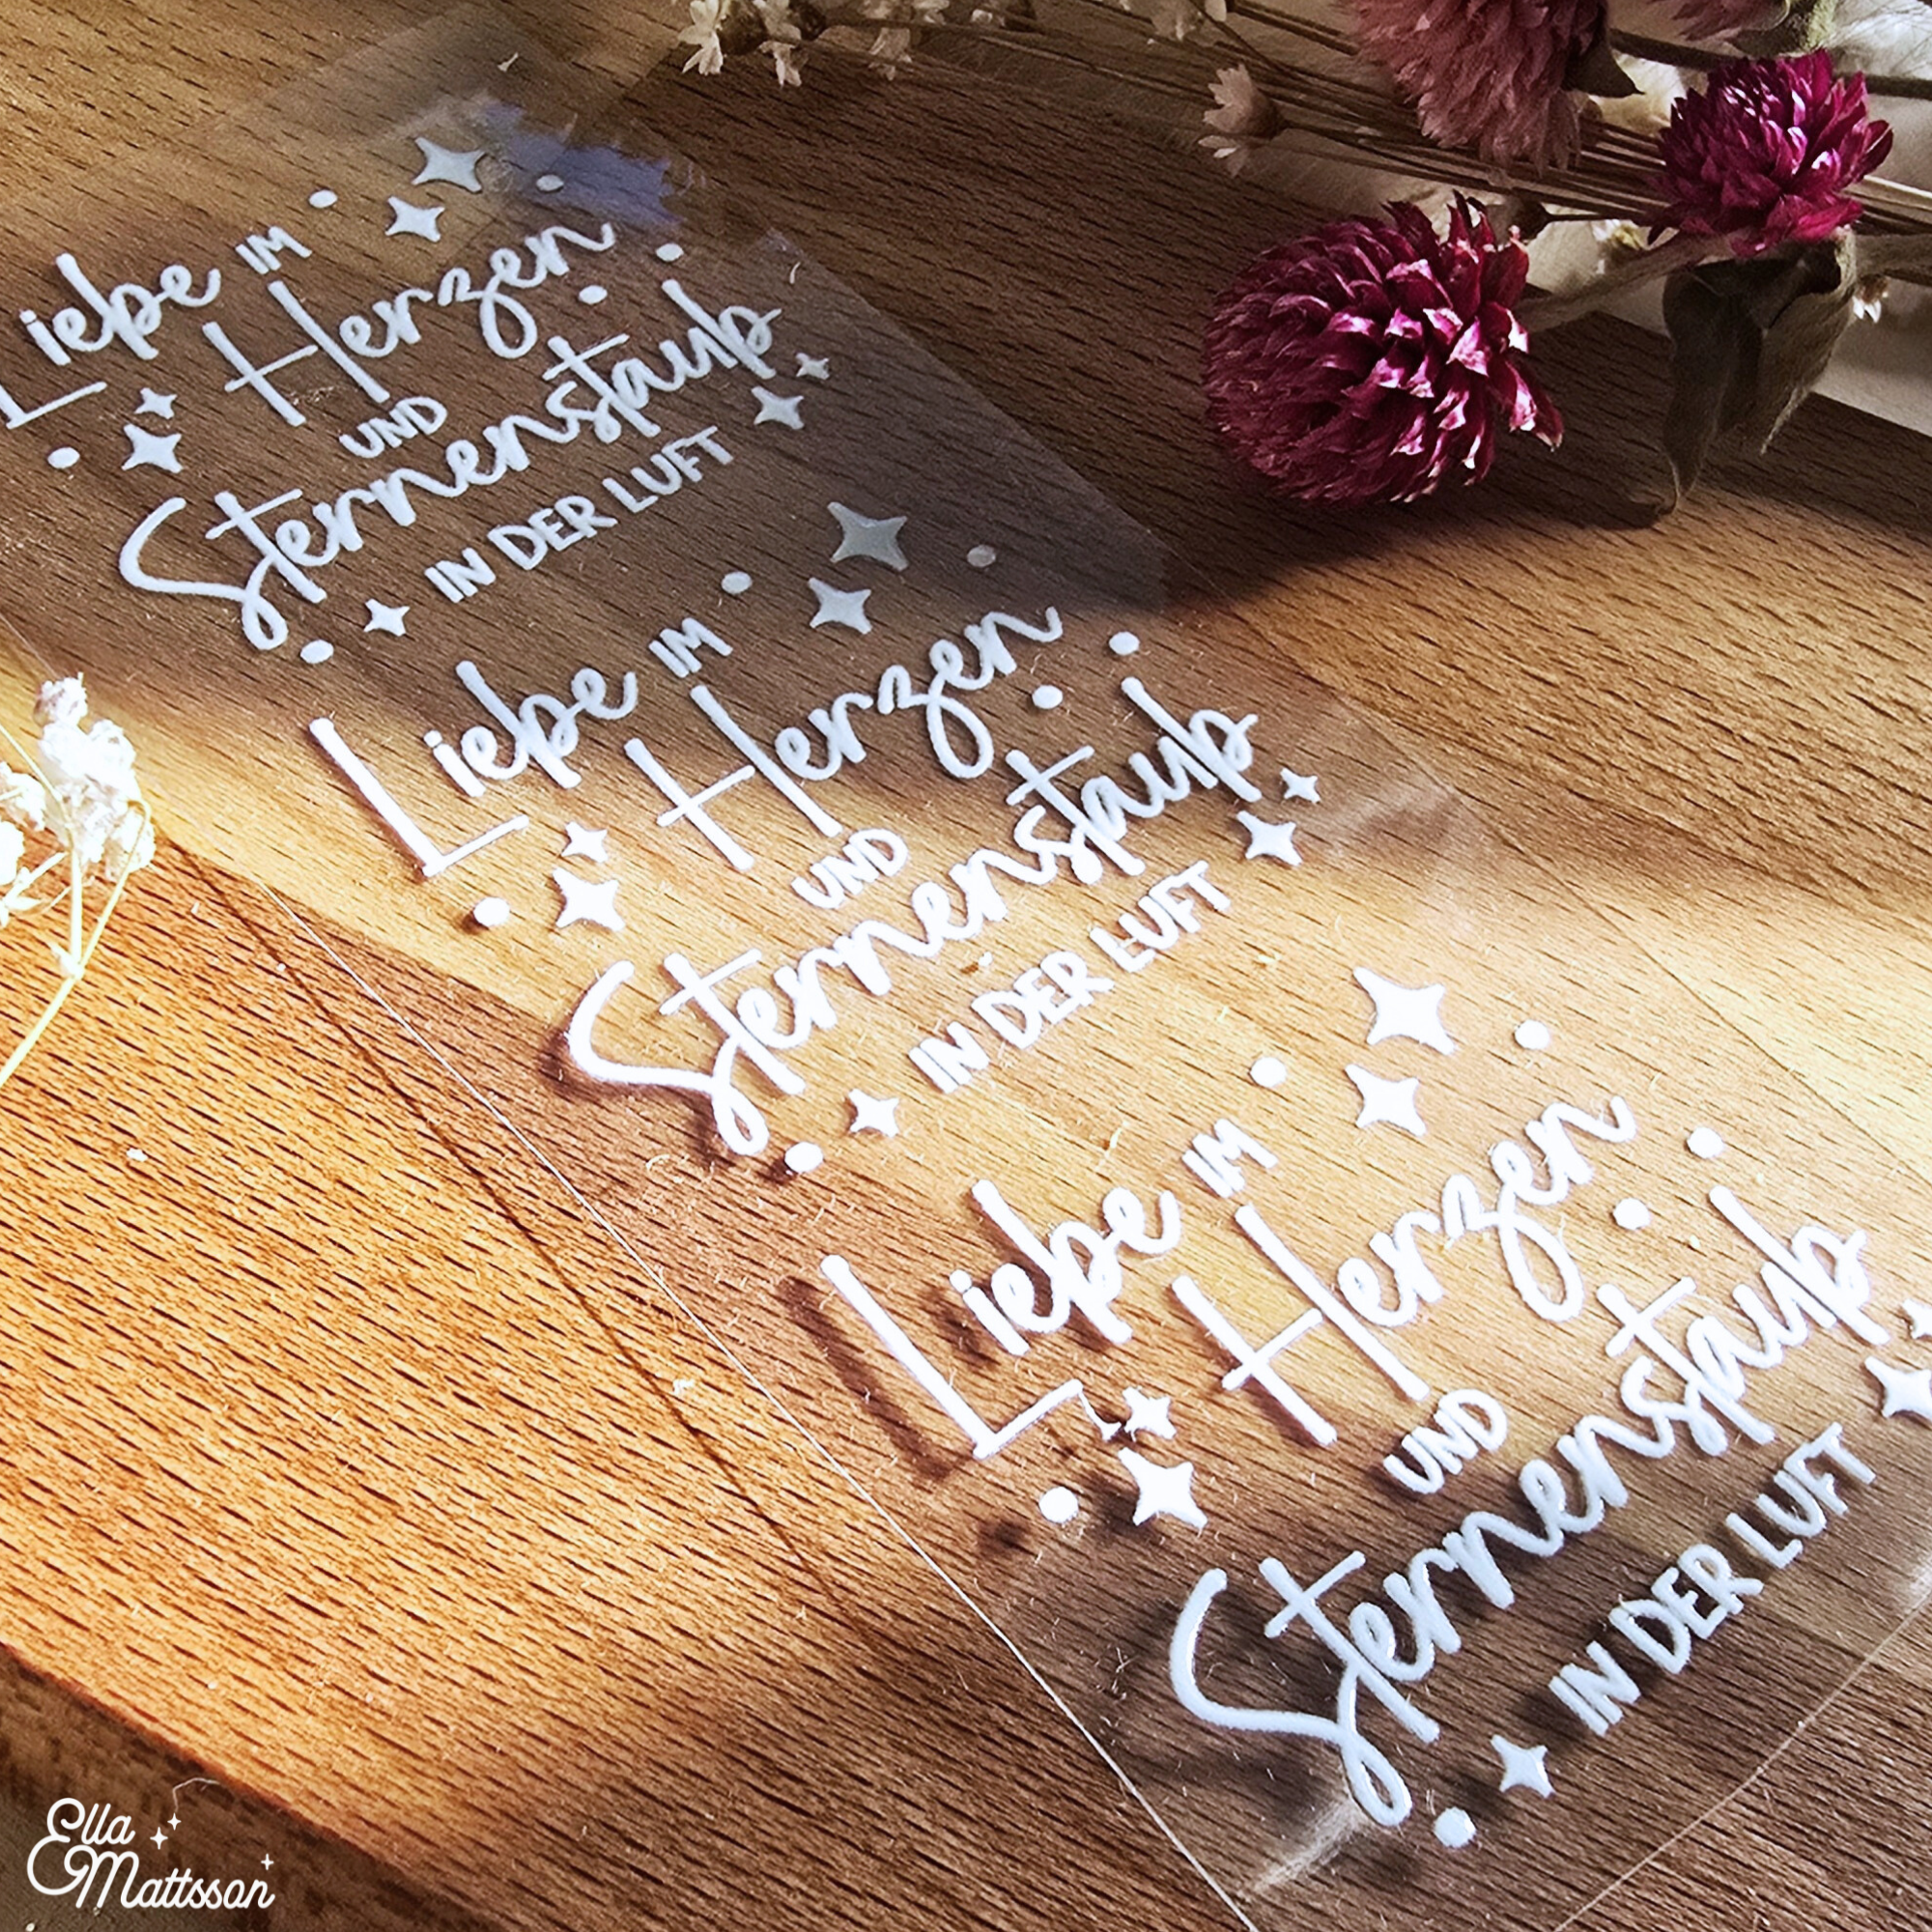 Liebe IM
Herzen
UND
Sternenstaub
IN DER LUFT
Liebe IM
Herzen
UND
Sternenstaub
IN DER LUFT
Liebe IM
Herzen
UND
Sternenstaub
IN DER LUFT
Ella
Mattsson